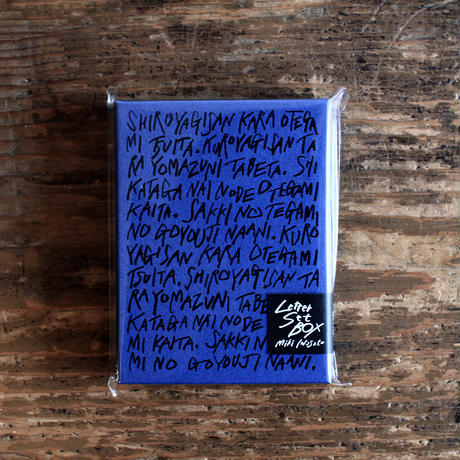 SHIROYAGISAN KARA OTEGA
MI TSUITA. KUROYAGISAN TA
RA YOMAZUNI TABETA. SHI
KATAGA NAI NODE OTEGAMI
KAITA. SAKKI NO TEGAMI
NO GOYOUJI NAANI. KURO
YAGISAN KARA OTEGAMI
TSUITA. SHIROYAGISAN TA
RA YOMAZUNI TABE
KATAGA NAI NODE
MI KAITA. SAKKI N
MI NO GOYOUJI NAANI.
Letter
Set
BOX
Miki